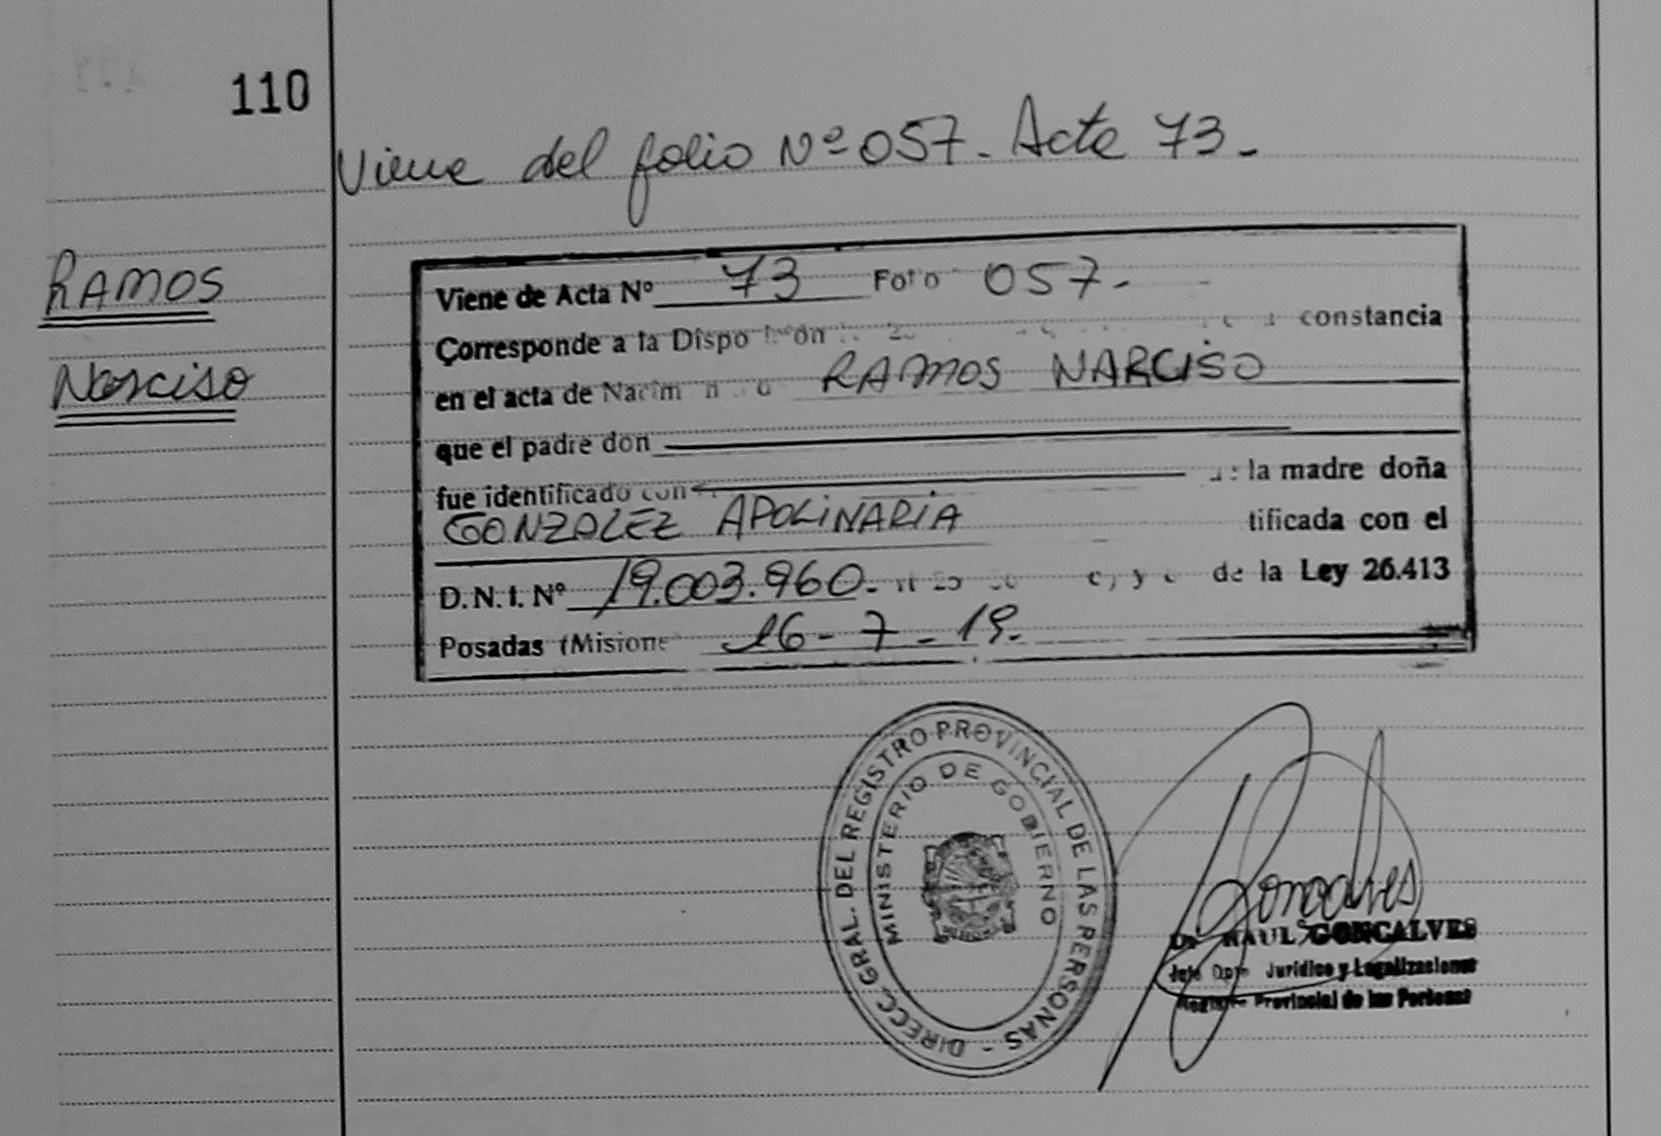 110
Viene del folio Nº 057. Acta 73.-
RAMOS
Narciso
Viene de Acta Nº 73 Folio 057.-
Corresponde a la Disposición constancia
en el acta de RAMOS NARCISO
que el padre don
fue identificado con la madre doña
GONZALEZ APOLINARIA tificada con el
D.N.I. Nº 19.003.960.- de la Ley 26.413
Posadas (Misione 16-7-19.
DIRECC. GRAL. DEL REGISTRO PROVINCIAL DE LAS PERSONAS -
MINISTERIO DE GOBIERNO
Goncalves
Dr RAUL GONCALVES
Jefe Dpto Jurídico y Legalizaciones
Provincial de las Personas